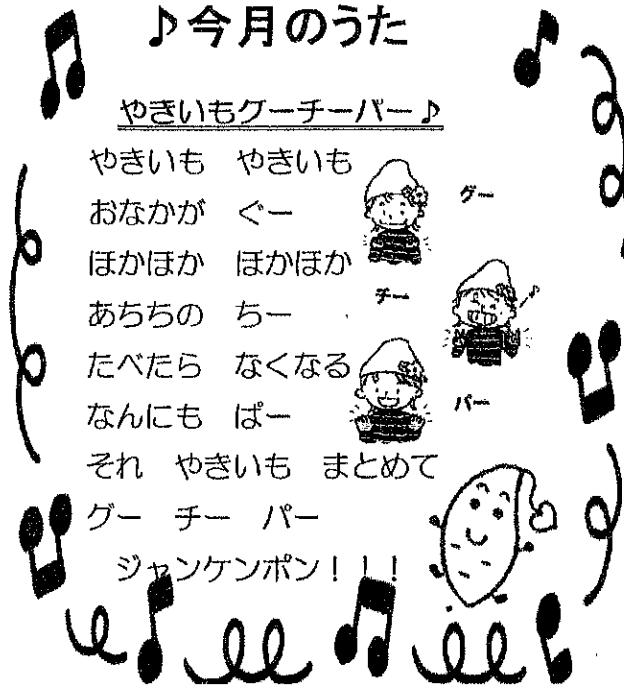 ♪今月のうた
やきいもグーチーパー♪
やきいも やきいも
おなかが ぐー
ほかほか ほかほか
あちちの ちー
たべたら なくなる
なんにも ぱー
それ やきいも まとめて
グー チー パー
ジャンケンポン！！！
グー
チー
パー